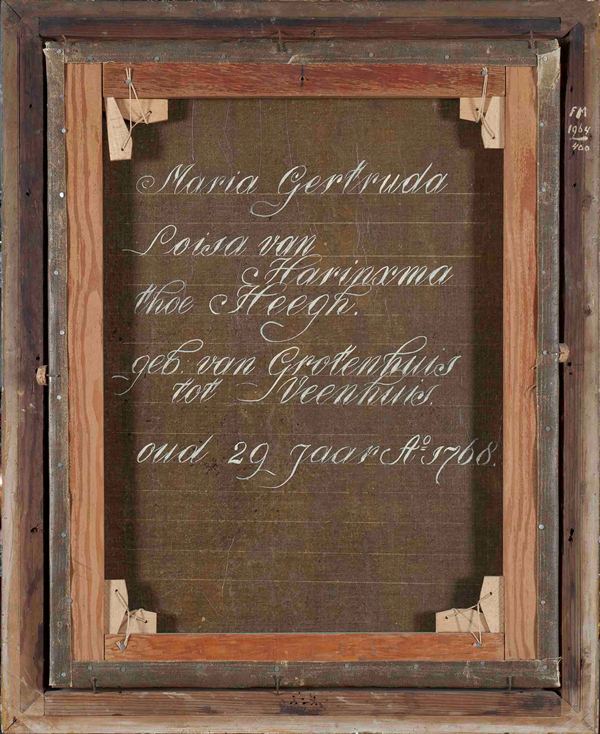 Maria Gertruda
Loisa van
Harinxma
thoe Heegh.
geb. van Grotenhuis
tot Veenhuis.
oud 29 jaar Aº 1768.
FM
1964
400